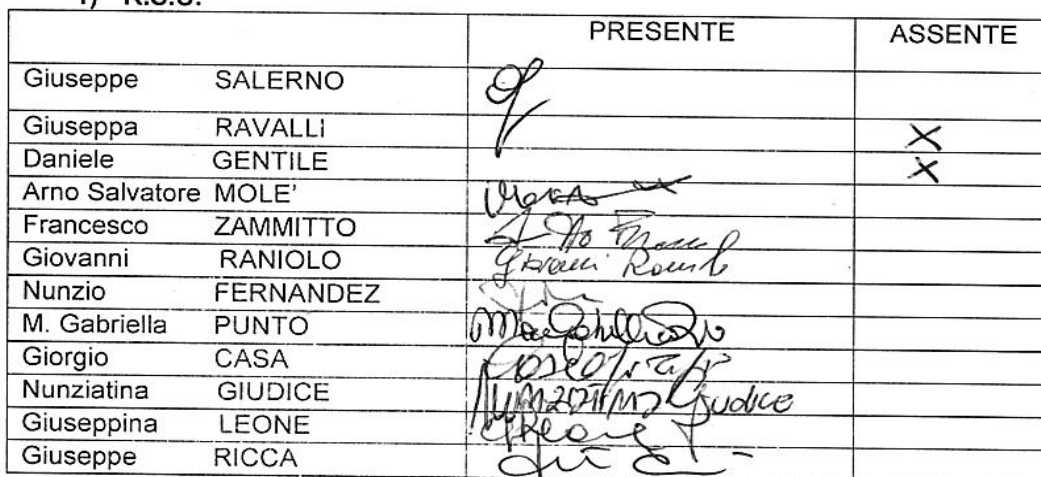 R.S.U.
PRESENTE ASSENTE
Giuseppe SALERNO
Giuseppa RAVALLI X
Daniele GENTILE X
Arno Salvatore MOLE'
Francesco ZAMMITTO
Giovanni RANIOLO Giovanni
Nunzio FERNANDEZ
M. Gabriella PUNTO
Giorgio CASA
Nunziatina GIUDICE Nunziatina Giudice
Giuseppina LEONE
Giuseppe RICCA